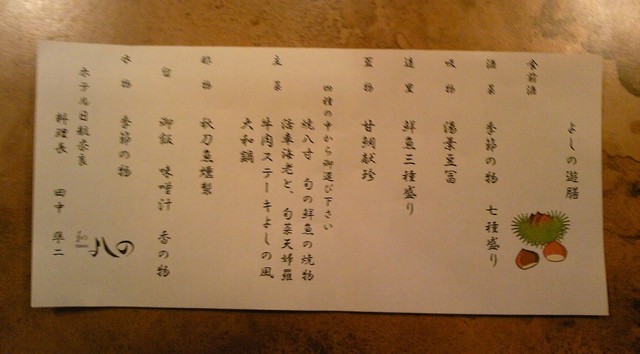 よしの遊膳
食前酒
酒菜 季節の物 七種盛り
吸物 湯葉豆冨
造里 鮮魚三種盛り
蓋物 甘鯛献珍
四種の中から御選び下さい
主菜 焼八寸 旬の鮮魚の焼物
活車海老と、旬菜天婦羅
牛肉ステーキよしの風
大和鍋
酢物 秋刀魚燻製
留 御飯 味噌汁 香の物
水物 季節の物
ホテル日航奈良
料理長 田中 準二
よしの